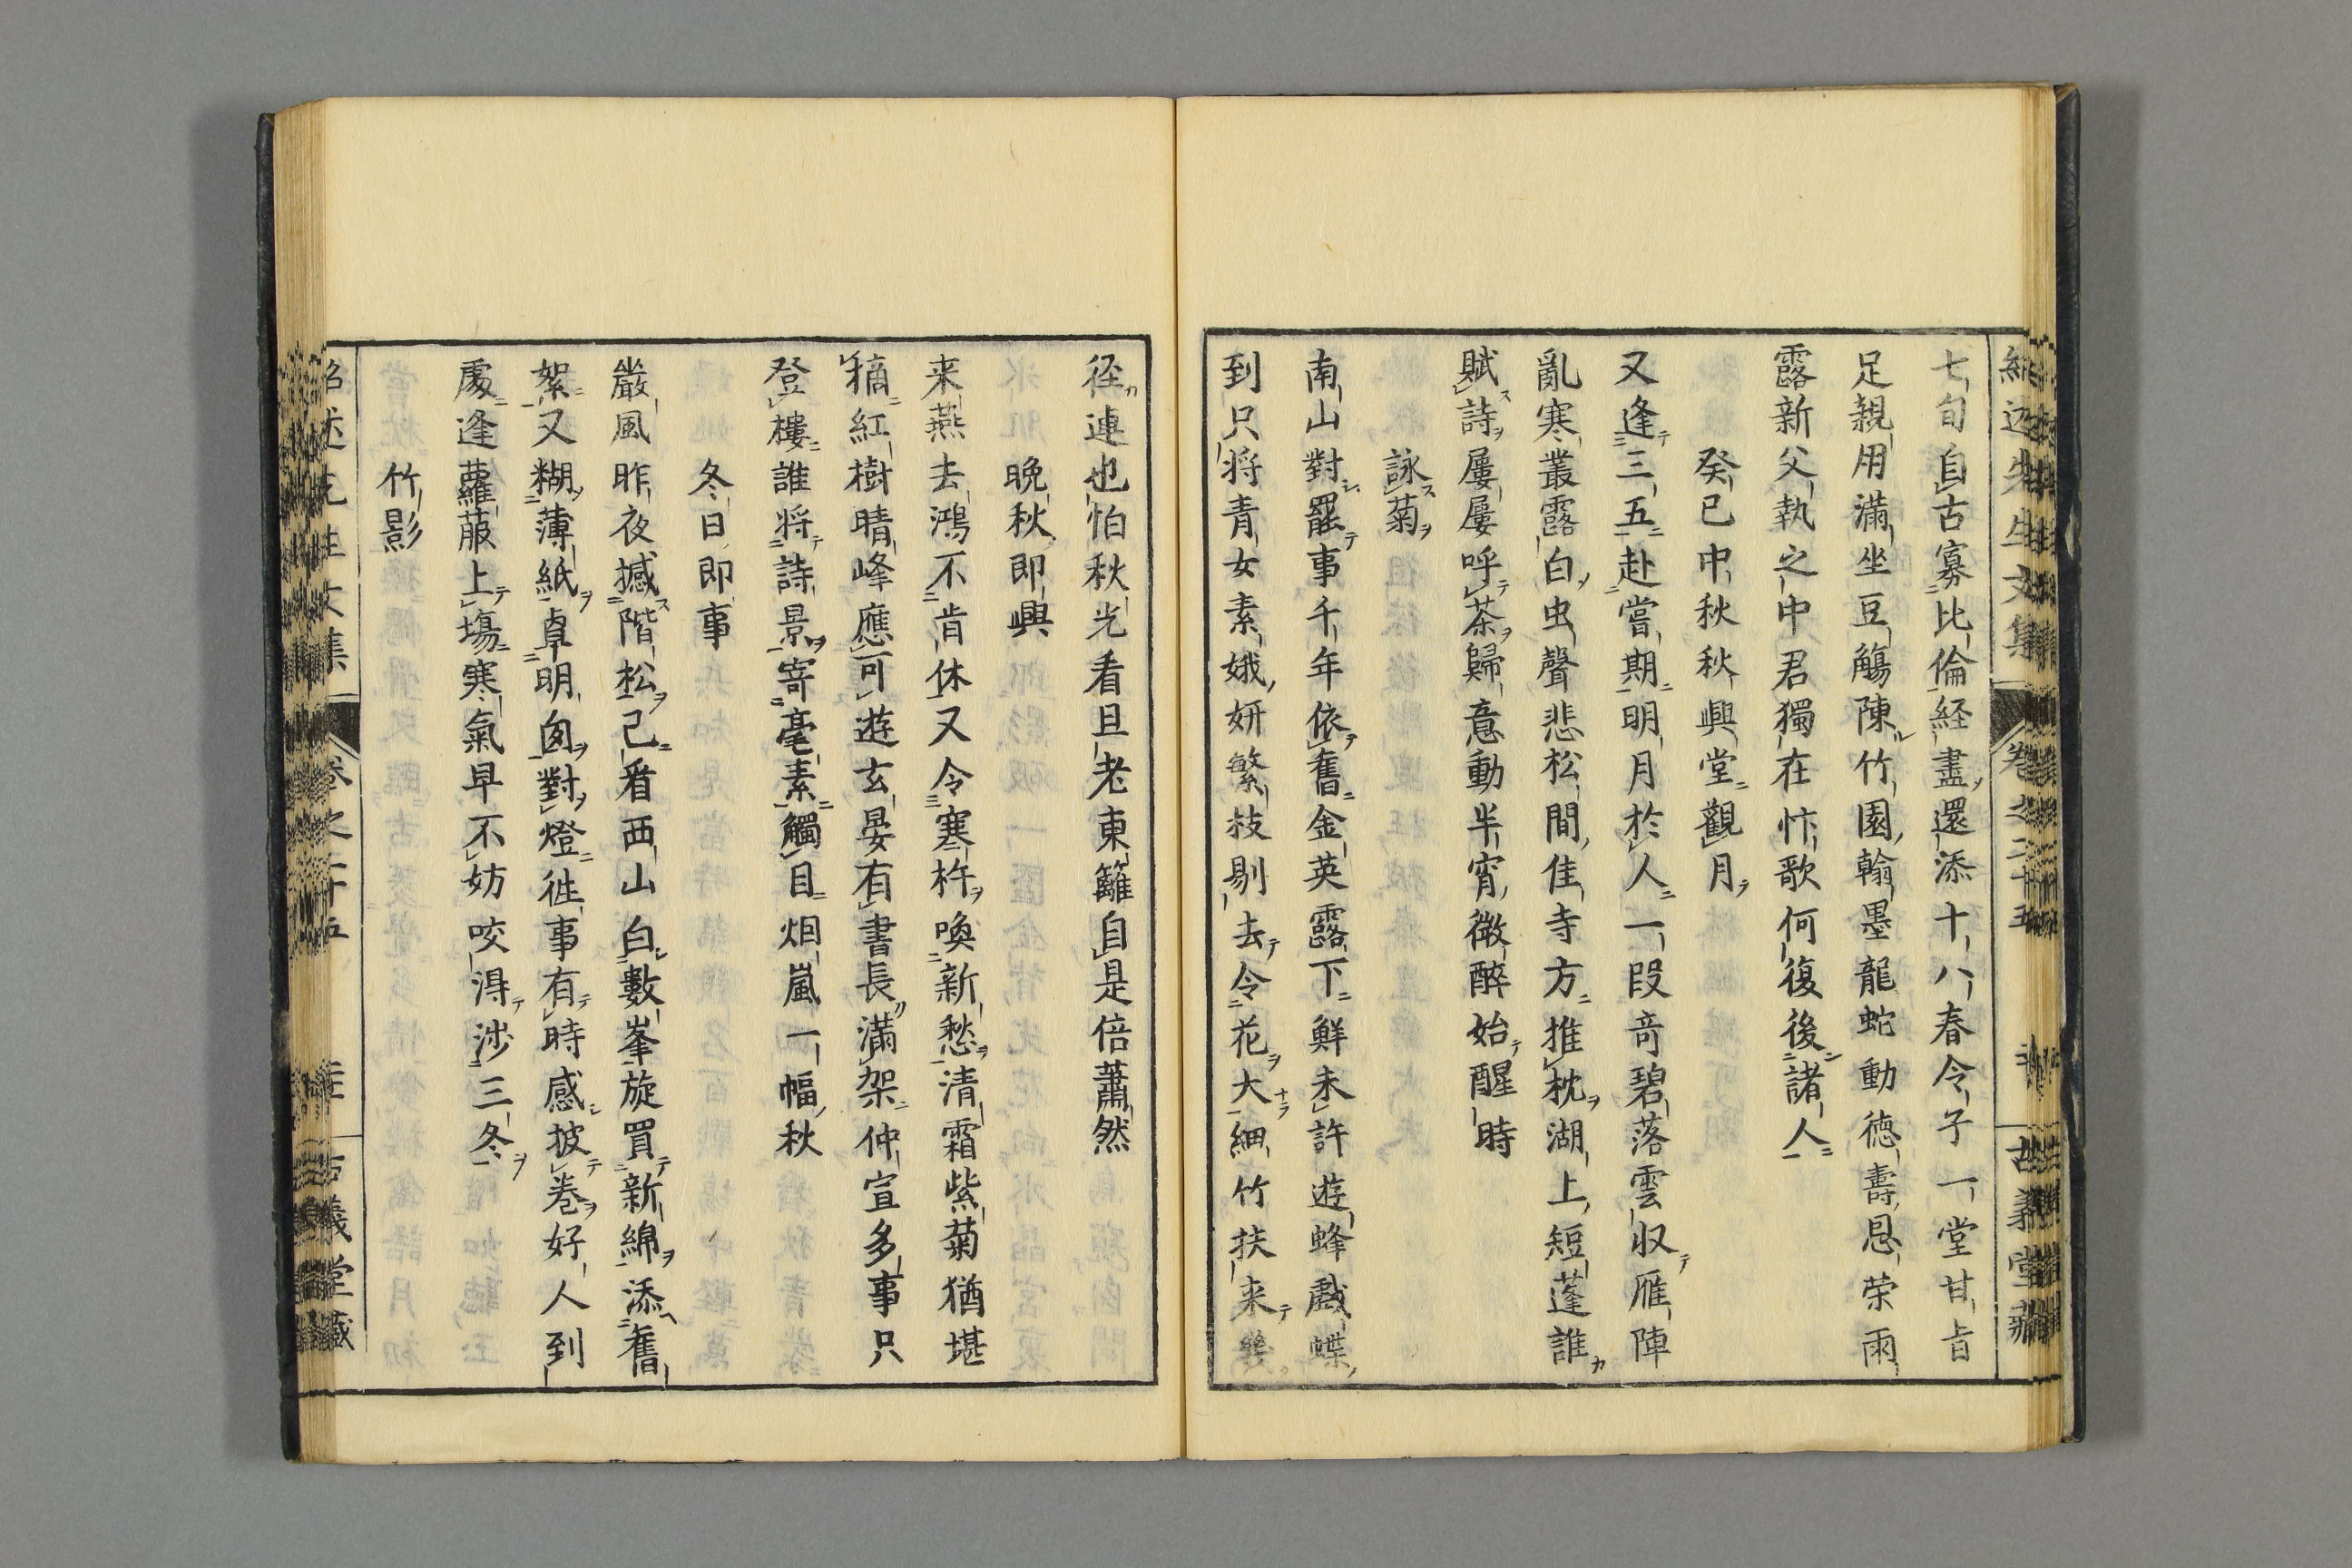 七旬自古寡比倫経盡還添十八春令子一堂甘旨
足親用滿坐豆觴陳竹園翰墨龍蛇動徳壽恩荣雨
露新父執之中君獨在忭歌何復後諸人
癸巳中秋秋興堂觀月
又逢三五赴嘗期明月於人一段竒碧落雲収雁陣
亂寒叢露白虫聲悲松間佳寺方推枕湖上短蓬誰
賦詩屢屢呼茶歸意動半宵微醉始醒時
詠菊
南山對罷事千年依舊金英露下鮮未許遊蜂戲蝶
到只将青女素娥妍繁枝剔去令花大細竹扶来
径連也怕秋光看且老東籬自是倍蕭然
晩秋即興
来燕去鴻不肯休又令寒杵喚新愁清霜紫菊猶堪
摘紅樹晴峰應可遊玄晏有書長滿架仲宣多事只
登樓誰将詩景寄毫素觸目烟嵐一幅秋
冬日即事
嚴風昨夜撼階松已看西山白數峯旋買新綿添舊
絮又糊薄紙卓明囱對燈徃事有時感披巻好人到
處逢蘿菔上塲寒氣早不妨咬得渉三冬
竹影